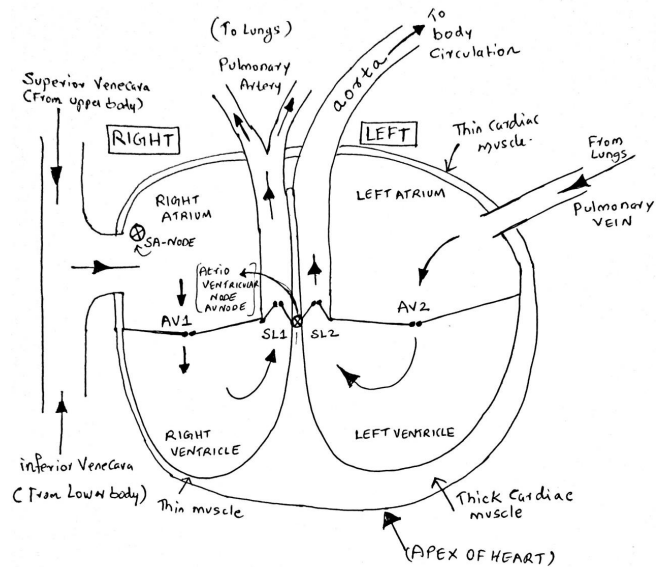 (To Lungs)
Pulmonary
Artery
To
body
Circulation
aorta
Superior Venecava
(From upper body)
RIGHT
LEFT
Thin Cardiac
muscle.
From
Lungs
Pulmonary
VEIN
RIGHT
ATRIUM
LEFT ATRIUM
SA-NODE
Atrio
VENTRICULAR
NODE
AV NODE
AV1
AV2
SL1
SL2
RIGHT
VENTRICLE
LEFT VENTRICLE
inferior Venecava
(From Lower body)
Thin muscle
Thick Cardiac
muscle
(APEX OF HEART)